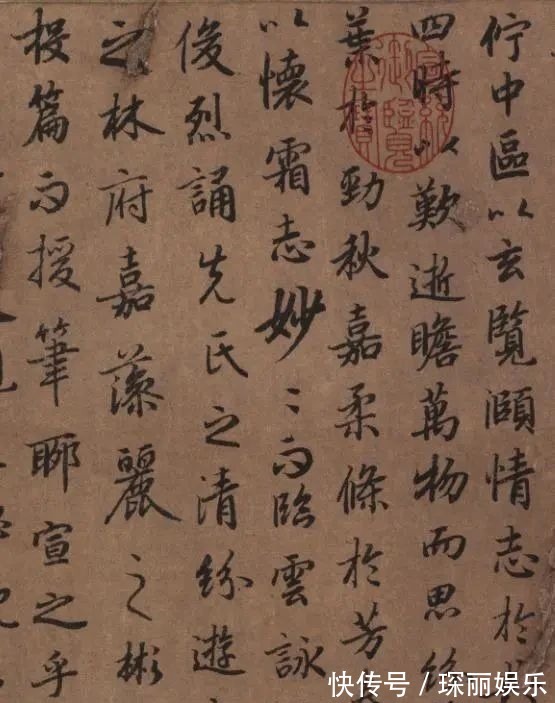 佇中區以玄覽頤情志於
四時以歎逝瞻萬物而思
葉於勁秋嘉柔條於芳
以懷霜志妙〻而臨雲詠
俊烈誦先氏之清紛遊
之林府嘉藻麗之彬
投篇而援筆聊宣之乎
快传号 / 琛丽娱乐